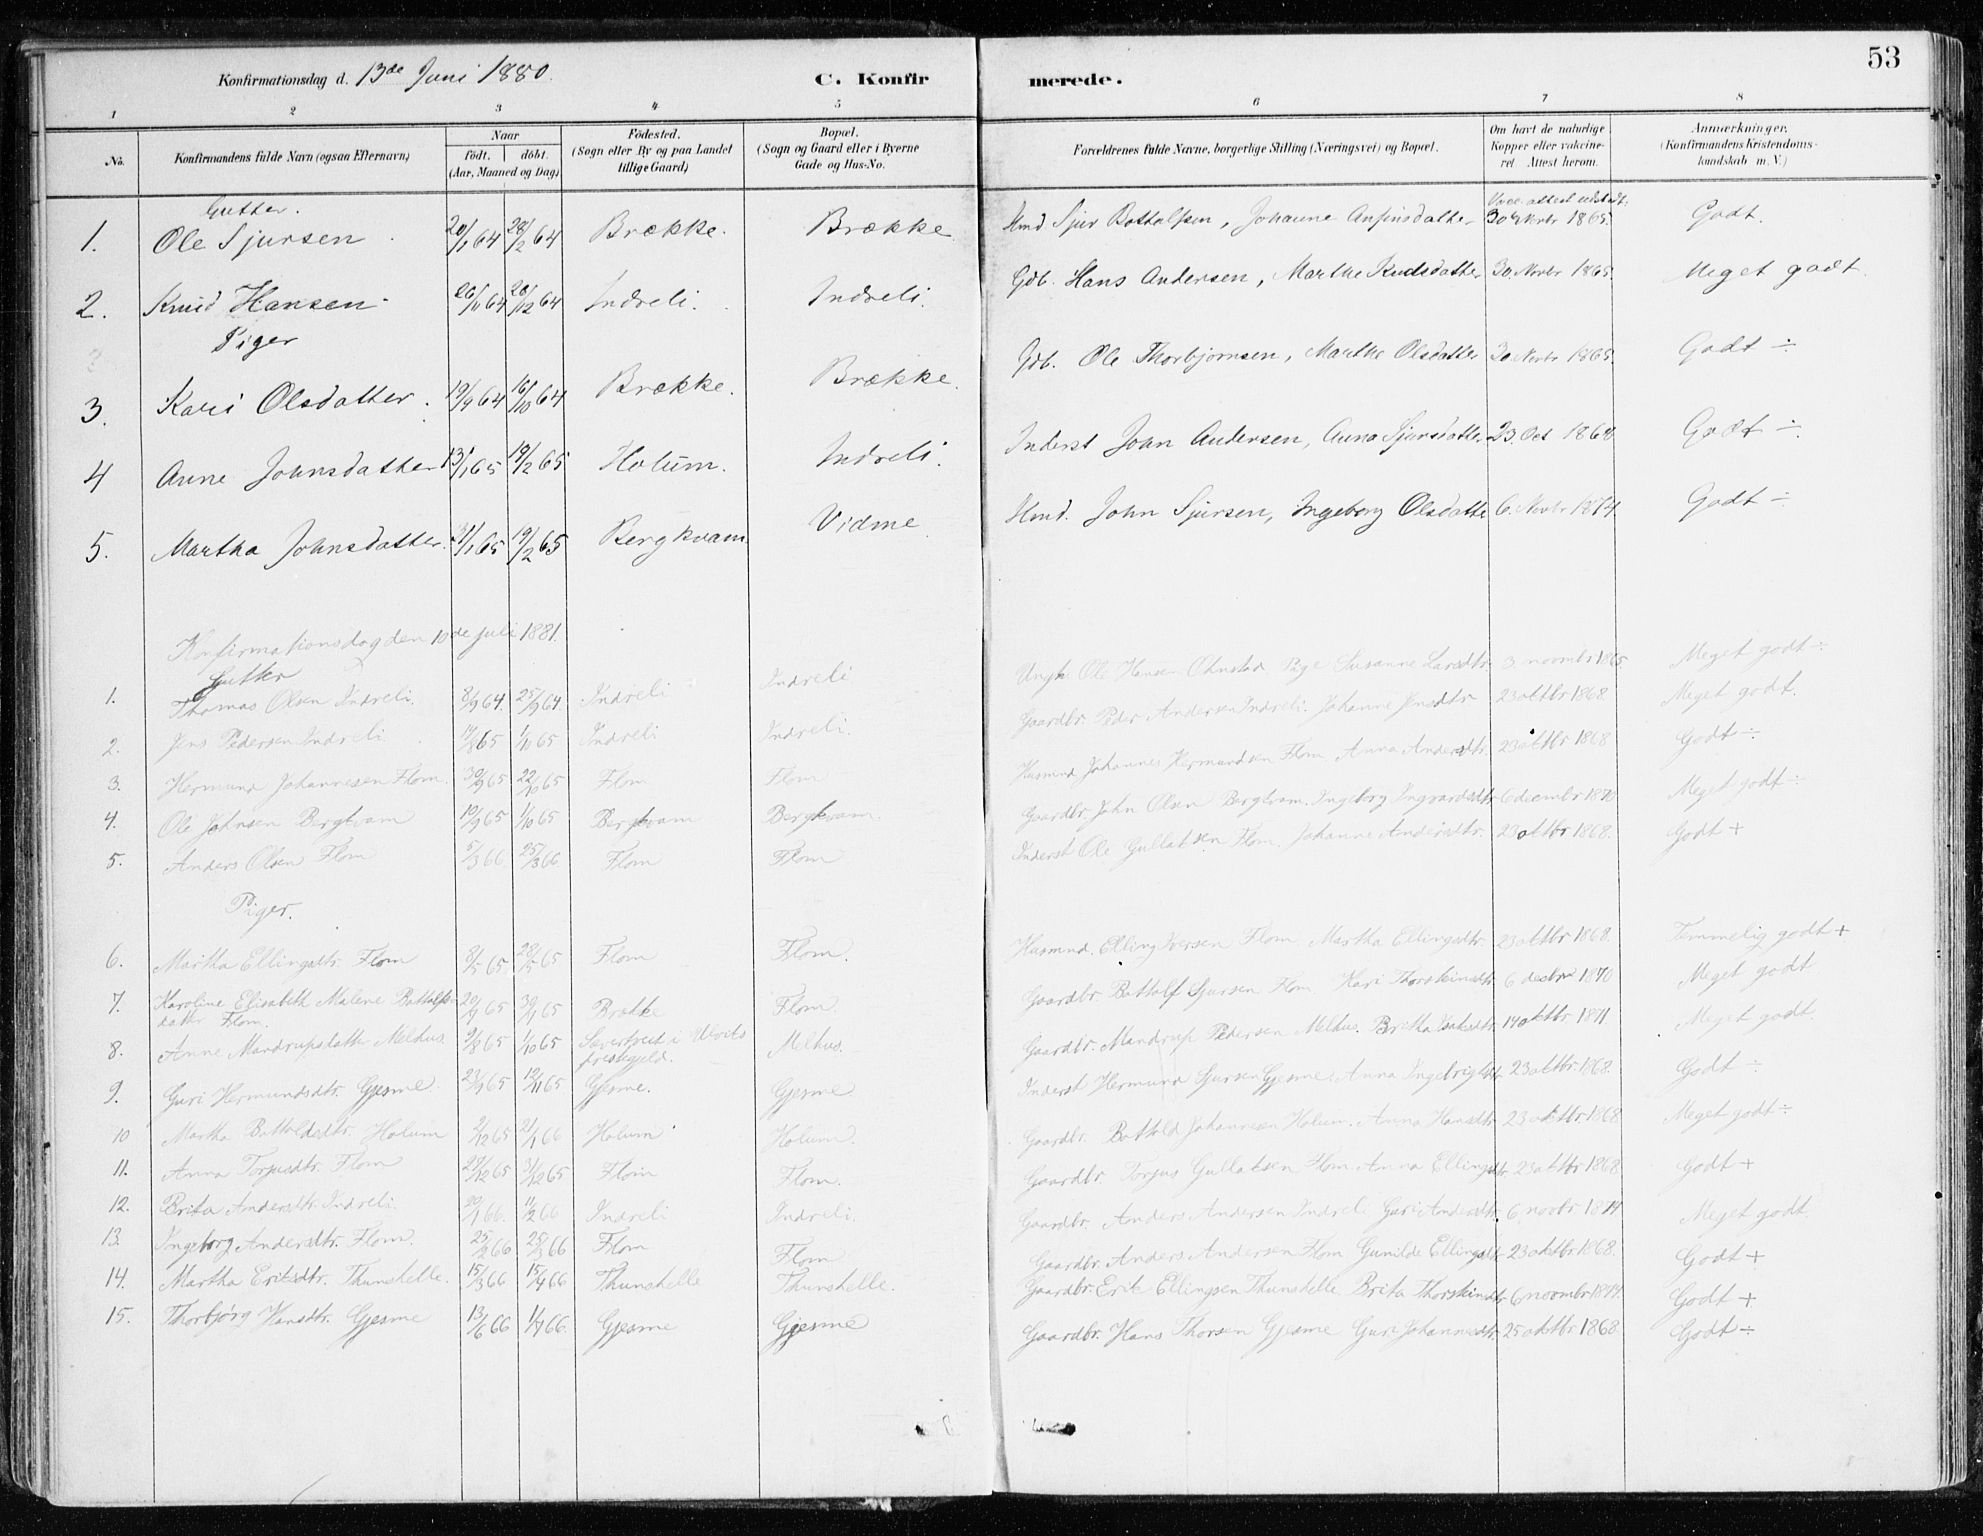 53
Konfirmationsdag d. 13de Juni 1880. C. Konfirmerede.
1 2 3 4 5 6 7 8
No. Konfirmandens fulde Navn (ogsaa Efternavn) Naar født. døbt. (Aar, Maaned og Dag) Fødested. (Sogn eller By og paa Landet tillige Gaard) Bopæl. (Sogn og Gaard eller i Byerne Gade og Hus-No. Forældrenes fulde Navne, borgerlige Stilling (Næringsvei) og Bopæl. Om havt de naturlige Kopper eller vakcineret Attest herom. Anmærkninger. (Konfirmandens Kristendomskundskab m. V.)
Gutter.
1. Ole Sjursen 20/1 64 28/2 64 Brække. Brække Hmd Sjur Bottolfsen, Johanne Anfinsdatter Vacc. attest udstedt. 30 Novbr 1865. Godt.
2. Knud Hansen 26/11 64 26/12 64 Indreli. Indreli. Gdb. Hans Andersen, Marthe Knudsdatter 30 Novbr 1865. Meget godt.
Piger
3. Kari Olsdatter. 19/9 64 16/10 64 Brække. Brække. Gdb. Ole Thorbjørnsen, Marthe Olsdatter 30 Novbr 1865. Godt ÷
4 Anne Johnsdatter 13/1 65 19/2 65 Holum. Indreli. Inderst John Andersen, Anna Sjursdatter 23. Oct 1868 Godt ÷
5. Martha Johnsdatter. 31/1 65 19/2 65 Bergkvam Vidme Hmd. John Sjursen, Ingeborg Olsdatter 6. Novbr 1874. Godt ÷
Konfirmationsdag den 10de juli 1881.
Gutter
1. Thomas Olsen Indreli. 8/9 64. 25/9 64. Indreli Indreli Ungk. Ole Hansen Ohnstad Pige Susanne Larsdtr. 3 novmbr 1865 Meget godt ÷
2. Jens Pedersen Indreli 19/8 65 1/10 65 Indreli Indreli. Gaardbr. Peder Andersen Indreli. Johanne Jensdtr 23 oktbr 1868. Meget godt.
3. Hermund Johannesen Flom. 30/9 65 22/10 65 Flom Flom Husmnd Johannes Hermundsen Flom. Anna Andersdtr. 23 oktbr 1868 Godt ÷
4. Ole Johnsen Bergkvam 10/9 65 1/10 65 Bergkvam Bergkvam. Gaardbr. John Olsen Bergkvam. Ingeborg Ingvardsdtr 6 decmbr 1870 Meget godt ÷
5. Anders Olsen Flom 5/3 66 25/3 66 Flom Flom Inderst Ole Gullaksen Flom. Johanne Andersdtr. 23 oktbr 1868. Godt +
Piger.
6. Martha Ellingsdtr. Flom 8/5 65 28/5 65 Flom Flom. Husmnd. Elling Iversen Flom. Martha Ellingsdtr. 23 oktbr 1868. Temmelig godt +
7. Karoline Elisabeth Malene Bottolfsdatter Flom. 20/9 65 30/ 65 Brække Flom. Gaardbr. Bottolf Sjursen Flom. Kari Thorsteinsdtr 6 decbr 1870 Meget godt
8. Anne Mandrupsdatter Melhus. 9/8 65 1/10 65 Sævertveit i Ulviks prestegjeld. Melhus. Gaardbr. Mandrup Pedersen Melhus. Britha Isaksdtr. 14 oktbr 1871 Meget godt.
9. Guri Hermundsdtr. Gjesme. 23/9 65 12/11 65 Gjesme. Gjesme Inderst Hermund Sjursen Gjesme. Anna Ingebrigtsdtr 23 oktbr. 1868. Godt ÷
10 Martha Bottoldsdtr. Holum 2/12 65 21/1 66 Holum Holum. Gaardbr. Bottold Johannesen Holum. Anna Hansdtr 23 oktbr 1868 Meget godt ÷
11. Anna Torjusdtr. Flom 28/12 65 31/12 65 Flom Flom. Gaardbr. Torjus Gullaksen Flom. Anna Ellingsdtr. 23 oktbr 1868 Godt +
12. Brita Andersdtr. Indreli. 20/1 66. 11/2 66 Indreli Indreli. Gaardbr. Anders Andersen Indreli. Guri Andersdtr 6 novbr 1874 Meget godt.
13. Ingeborg Andersdtr. Flom. 25/2 66 25/3 66 Flom Flom Gaardbr. Anders Andersen Flom Gunilde Ellingsdtr 23 oktbr 1868. Godt +
14. Martha Eriksdtr. Thunshelle. 15/3 66 15/4 66 Thunshelle Thunshelle. Gaardbr. Erik Ellingsen Thunshelle. Brita Thorsteinsdtr 6 novmbr 1874. Godt +
15. Thorbjørg Hansdtr. Gjesme 13/6 66 1/7 66. Gjesme Gjesme Gaardbr. Hans Thorsen Gjesme Guri Johannesdtr. 25 oktbr 1868 Godt ÷